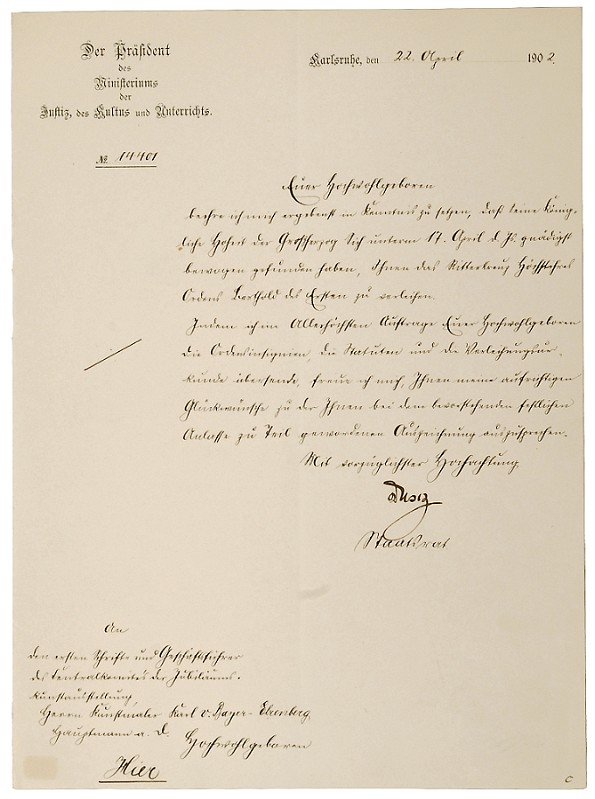 Der Präsident
des
Ministeriums
der
Justiz, des Kultus und Unterrichts.
Karlsruhe, den 22. April 1902.
No. 14401
Euer Hochwohlgeboren
beehre ich mich ergebenst in Kenntnis zu setzen, daß Seine König-
liche Hoheit der Großherzog Sich unterm 17. April d. Js. gnädigst
bewogen gefunden haben, Ihnen das Ritterkreuz Höchstihres
Ordens Berthold des Ersten zu verleihen.
Indem ich im Allerhöchsten Auftrage Euer Hochwohlgeboren
die Ordensinsignien, die Statuten und die Verleihungsur-
kunde übersende, freue ich mich, Ihnen meine aufrichtigen
Glückwünsche zu der Ihnen bei dem bevorstehenden festlichen
Anlasse zu Teil gewordenen Auszeichnung auszusprechen.
Mit vorzüglichster Hochachtung
Staatsrat
An
den ersten Schrift- und Geschäftsführer
des Centralkomite's der Jubiläums-
kunstausstellung,
Herrn Kunstmaler Karl v. Bayer-Ehrenberg,
Hauptmann a. D. Hochwohlgeboren
Hier
C